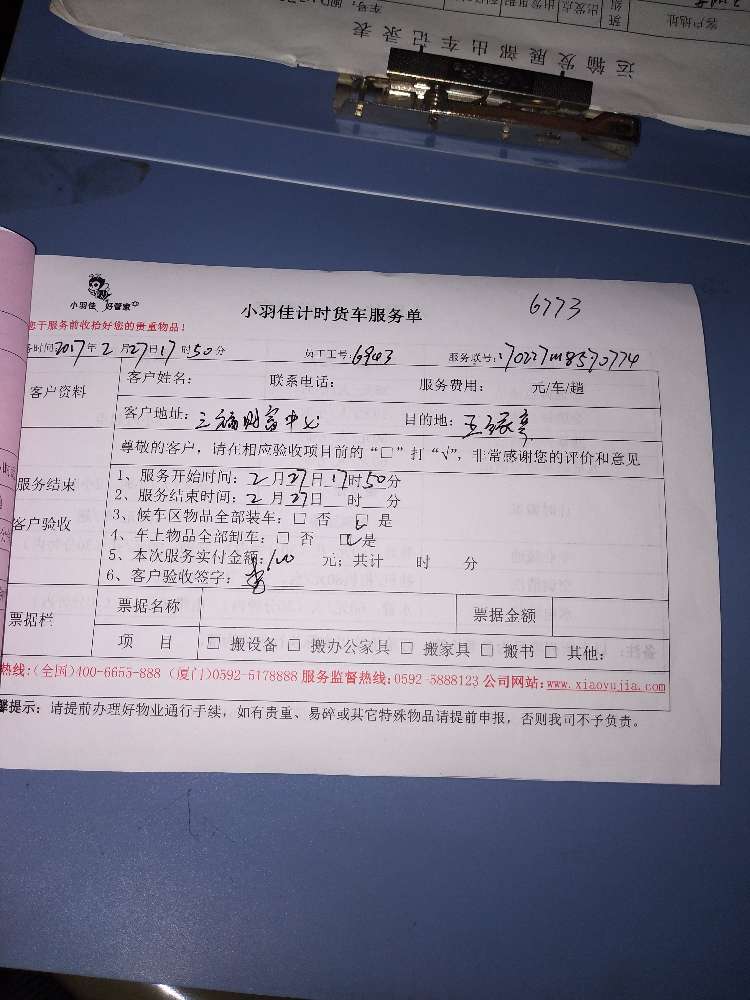 运输发展部出车记录表
客户地址
小羽佳 好管家
小羽佳计时货车服务单
6773
您于服务前收拾好您的贵重物品！
务时间2017年2月27日17时50分 员工工号:6943 服务账号:
客户资料
客户姓名: 联系电话: 服务费用: 元/车/趟
客户地址: 三福财富中心 目的地:
尊敬的客户，请在相应验收项目前的“□”打“√”，非常感谢您的评价和意见
服务结束
客户验收
1、服务开始时间: 2月27日17时50分
2、服务结束时间: 2月27日 时 分
3、候车区物品全部装车: □ 否 ☑ 是
4、车上物品全部卸车: □ 否 ☑ 是
5、本次服务实付金额: 100 元; 共计 时 分
6、客户验收签字:
票据栏
票据名称 票据金额
项 目 □ 搬设备 □ 搬办公家具 □ 搬家具 □ 搬书 □ 其他:
热线:(全国)400-6655-888 (厦门)0592-5178888 服务监督热线:0592-5888123 公司网站:www.xiaoyujia.com
馨提示: 请提前办理好物业通行手续，如有贵重、易碎或其它特殊物品请提前申报，否则我司不予负责。